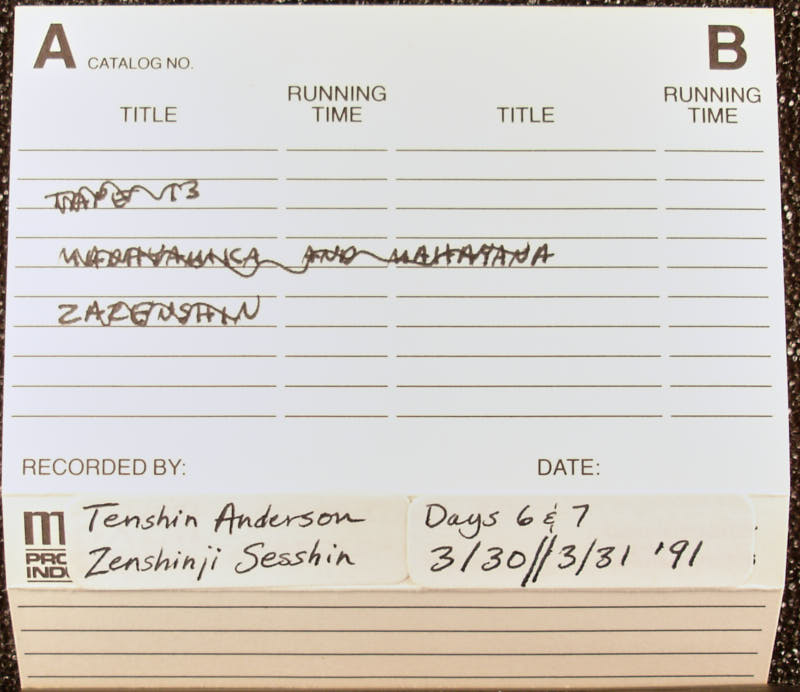 A CATALOG NO. B
TITLE RUNNING TIME TITLE RUNNING TIME
TAPE 13
AND MAHAYANA
ZAZENSHIN
RECORDED BY: DATE:
Tenshin Anderson Days 6 & 7
Zenshinji Sesshin 3/30//3/31 '91
PRO
IND